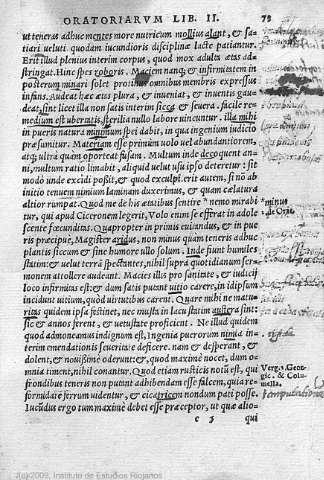 ORATORIARVM LIB. II. 79
ut teneras adhuc mentes more nutricum mollius alant, & sa-
tiari ueluti quodam iucundioris disciplinæ lacte patiantur.
Erit illud plenius interim corpus, quod mox adulta ætas ad-
stringat. Hinc spes roboris. Maciem nanq; & infirmitatem in
posterum minari solet protinus omnibus membris expressus
infans. Audeat hæc ætas plura, & inueniat, & inuentis gau-
deat, sint licet illa non satis interim sicca & seuera. facile re-
medium est ubertatis, sterilia nullo labore uincuntur. illa mihi
in pueris natura minimum spei dabit, in qua ingenium iudicio
præsumitur. Materiam esse primùm uolo uel abundantiorem,
atq; ultra quàm oporteat fusam. Multum inde decoquent an-
ni, multum ratio limabit, aliquid uelut usu ipso deteretur: sit
modò unde excidi possit, & quod exculpi. erit autem, si nō ab
initio tenuem nimium laminam duxerimus, & quam cælatura
altior rumpat. Quod me de his ætatibus sentire minus mirabi-
tur, qui apud Ciceronem legerit, Volo enim se efferat in adole-
scente fœcunditas. Quapropter in primis euitandus, & in pue-
ris præcipue, Magister aridus, non minus quàm teneris adhuc
plantis siccum & sine humore ullo solum. Inde fiunt humiles
statim: & uelut terrā spectantes, nihil supra quotidianum ser-
monem attollere audeant. Macies illis pro sanitate, & iudicij
loco infirmitas est: & dum satis putant uitio carere, in id ipsum
incidunt uitium, quod uirtutibus carent. Quare mihi ne matu-
ritas quidem ipsa festinet, nec musta in lacu statim austera sint:
sic & annos ferent, & uetustate proficient. Ne illud quidem
quod admoneamus indignum est, Ingenia puerorum nimia in-
terim emendationis seueritate deficere. nam & desperant, &
dolent, & nouissimè oderunt: &, quod maximè nocet, dum o-
mnia timent, nihil conantur. Quod etiam rusticis notū est, qui
frondibus teneris non putant adhibendam esse falcem, quia re-
formidare ferrum uidentur, & cicatricem nondum pati posse.
Iucūdus ergo tum maximè debet esse præceptor, ut quæ alio-
c 3 qui
minus
de Orat.
Verg. Geor-
gic. & Colu-
mella.
Instituto de Estudios Riojanos